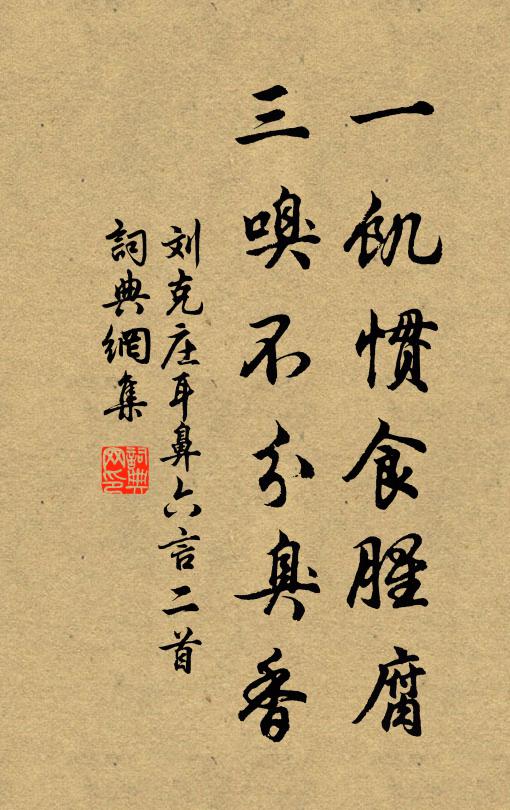 一飢慣食腥腐
三嗅不分臭香
刘克庄耳鼻六言二首
詞典網集
詞典
网印